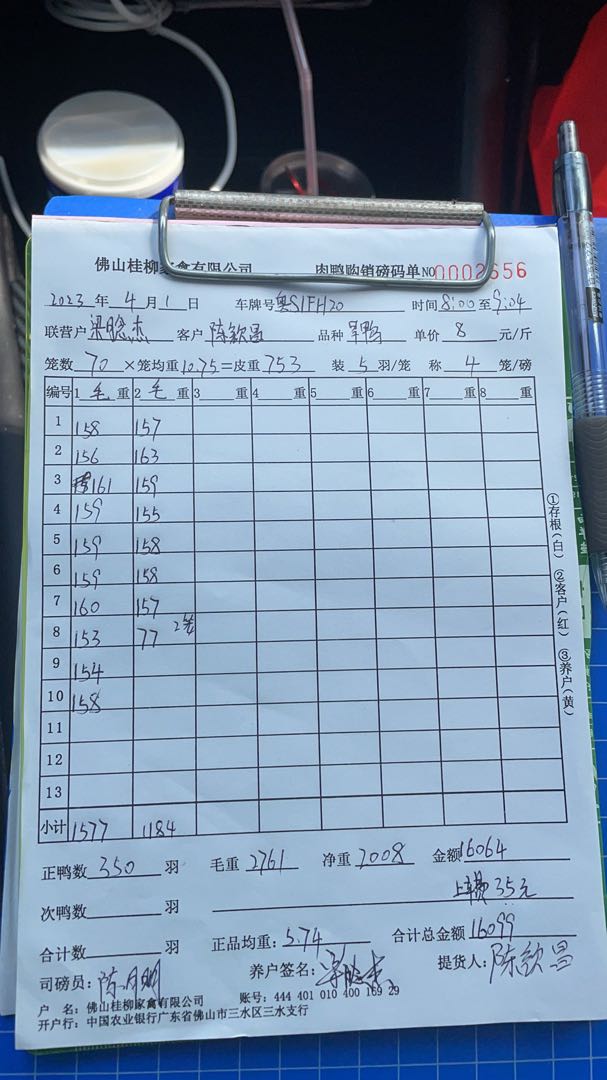 佛山桂柳家禽有限公司 肉鸭购销磅码单 NO0002656
2023年 4月 1日 车牌号 粤S1FH20 时间 8:00至9:04
联营户 梁聪杰 客户 陈钦昌 品种 单价 8 元/斤
笼数 70 ×笼均重 10.75=皮重 753 装 5 羽/笼 称 4 笼/磅
编号 1 毛 重 2 毛 重 3 重 4 重 5 重 6 重 7 重 8 重
1 158 157
2 156 163
3 161 159
4 159 155
5 159 158
6 159 158
7 160 157
8 153 77 2笼
9 154
10 158
11
12
13
小计 1577 1184
①存根(白) ②客户(红) ③养户(黄)
正鸭数 350 羽 毛重 2761 净重 2008 金额 16064
次鸭数 羽 上车费35元
合计数 羽 正品均重: 5.74 合计总金额 16099
司磅员: 养户签名: 梁聪杰 提货人: 陈钦昌
户 名: 佛山桂柳家禽有限公司 账号: 444 401 010 400 169 29
开户行: 中国农业银行广东省佛山市三水区三水支行